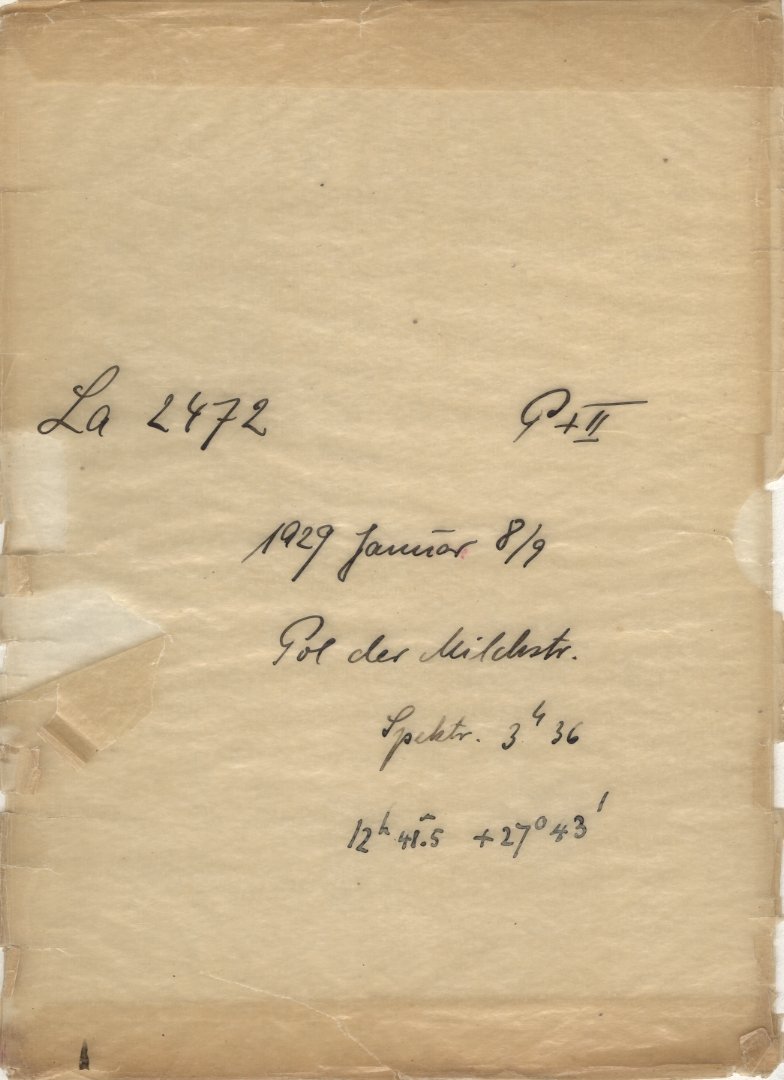 La 2472 P+II
1929 Januar 8/9
Pol der Milchstr.
Spektr. 3ʰ36
12ʰ 41ᵐ.5 +27° 43'